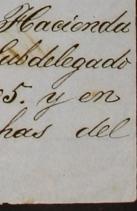 Hacienda
Subdelegado
5. y en
has del